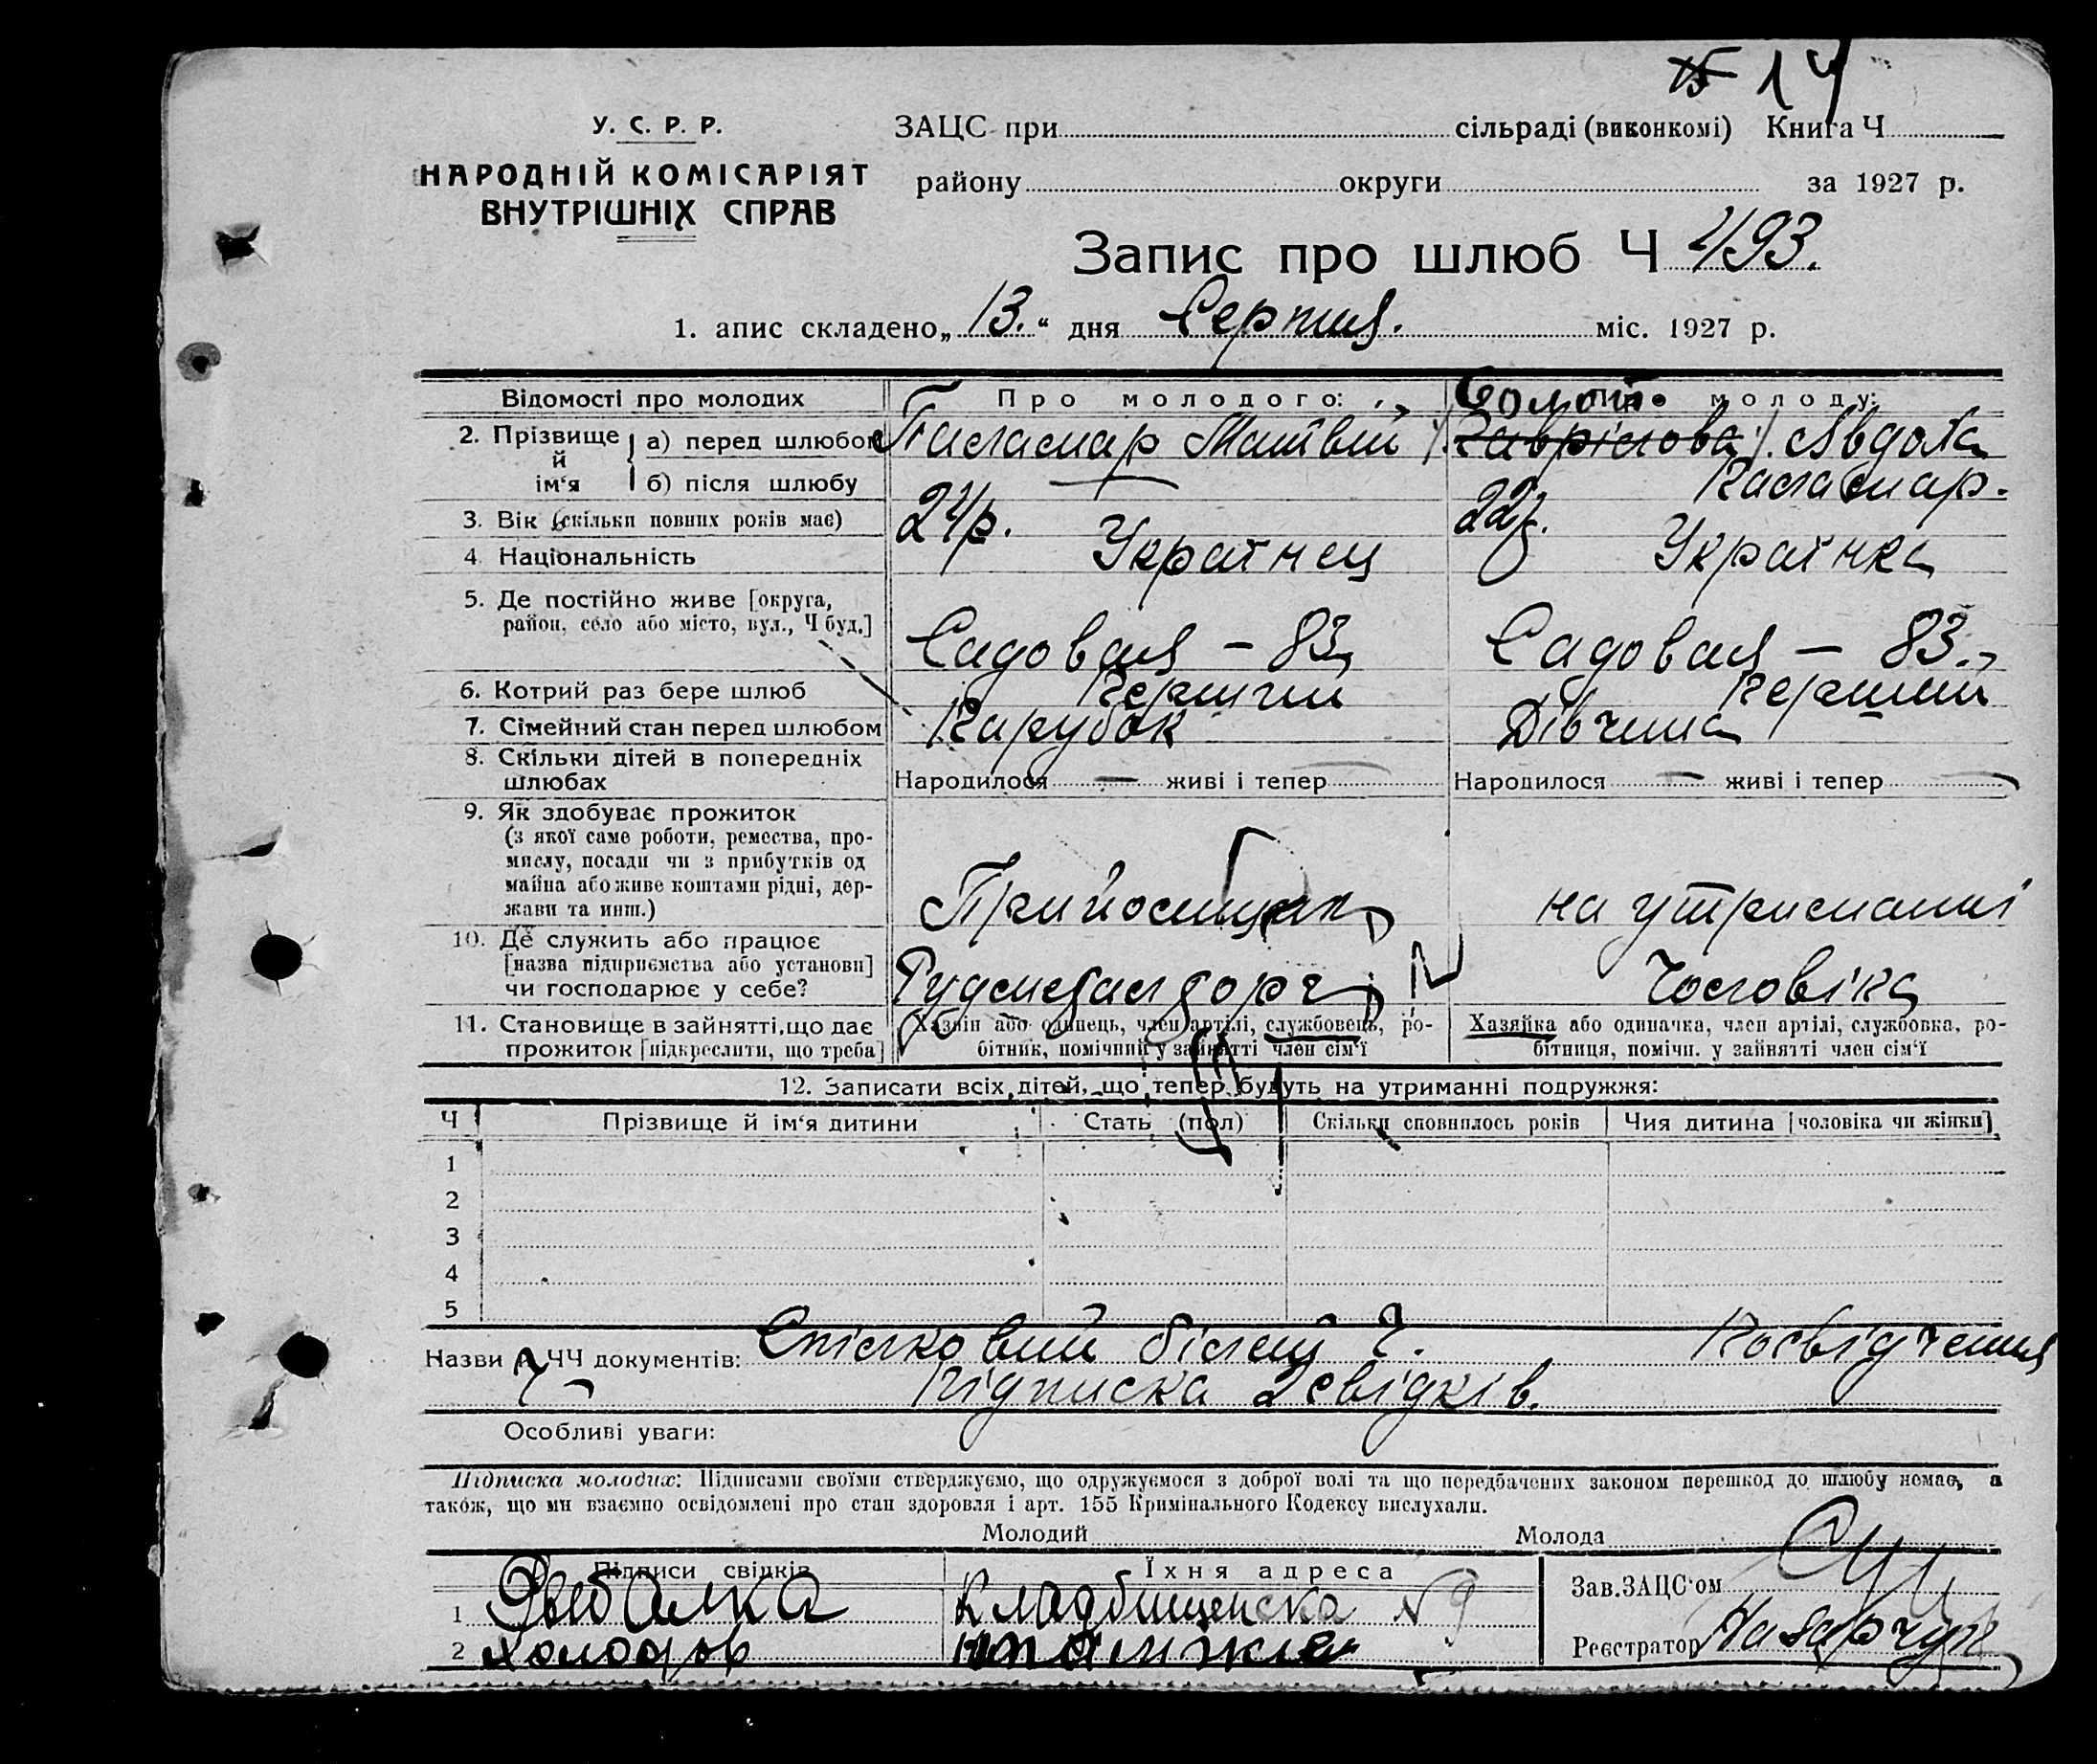 14
У. С. Р. Р.
НАРОДНІЙ КОМІСАРІЯТ
ВНУТРІШНІХ СПРАВ
ЗАЦС при сільраді (виконкомі) Книга Ч
району округи за 1927 р.
Запис про шлюб Ч 493.
1. апис складено „13.“ дня Серпня. міс. 1927 р.
Відомості про молодих
Про молодого:
молоду:
2. Прізвище й ім‘я
а) перед шлюбом
Матвій
Гаврілова Явдоха
б) після шлюбу
3. Вік (скільки повних років має)
24р.
22р.
4 Національність
Українец
Українка
5. Де постійно живе [округа,
район, село або місто, вул., Ч буд.]
Садовая – 83
Садовая – 83.
6. Котрий раз бере шлюб
Перший
Перший
7. Сімейний стан перед шлюбом
Парубок
Дівчина
8. Скільки дітей в попередніх
шлюбах
Народилося — живі і тепер —
Народилося — живі і тепер —
9. Як здобуває прожиток
(з якої саме роботи, ремества, про-
мислу, посади чи з прибутків од
майна або живе коштами рідні, дер-
жави та инш.)
на утриманні
10. Де служить або працює
[назва підприємства або установи]
чи господарює у себе?
Чоловіка
11. Становище в зайнятті, що дає
прожиток [підкреслити, що треба]
Хазяїн або одинець, член артілі, службовець, ро-
бітник, помічний у зайнятті член сім‘ї
Хазяйка або одиначка, член артілі, службовка, ро-
бітниця, помічн. у зайнятті член сім‘ї
12. Записати всіх дітей, що тепер будуть на утриманні подружжя:
Ч
Прізвище й ім‘я дитини
Стать (пол)
Скільки сповнилось років
Чия дитина [чоловіка чи жінки]
1
2
3
4
5
Назви й ЧЧ документів: Спілковий білет Ч. Посвідчення
Підписка 2 свідків.
Особливі уваги:
Підписка молодих: Підписами своїми стверджуємо, що одружуємося з доброї волі та що передбачених законом перешкод до шлюбу немає, а
також, що ми взаємно освідомлені про стан здоровля і арт. 155 Кримінального Кодексу вислухали.
Молодий Молода
Підписи свідків
Їхня адреса
Зав. ЗАЦС‘ом
1
Кладбищенска N 9
2 Холодов
Реєстратор Назарчук